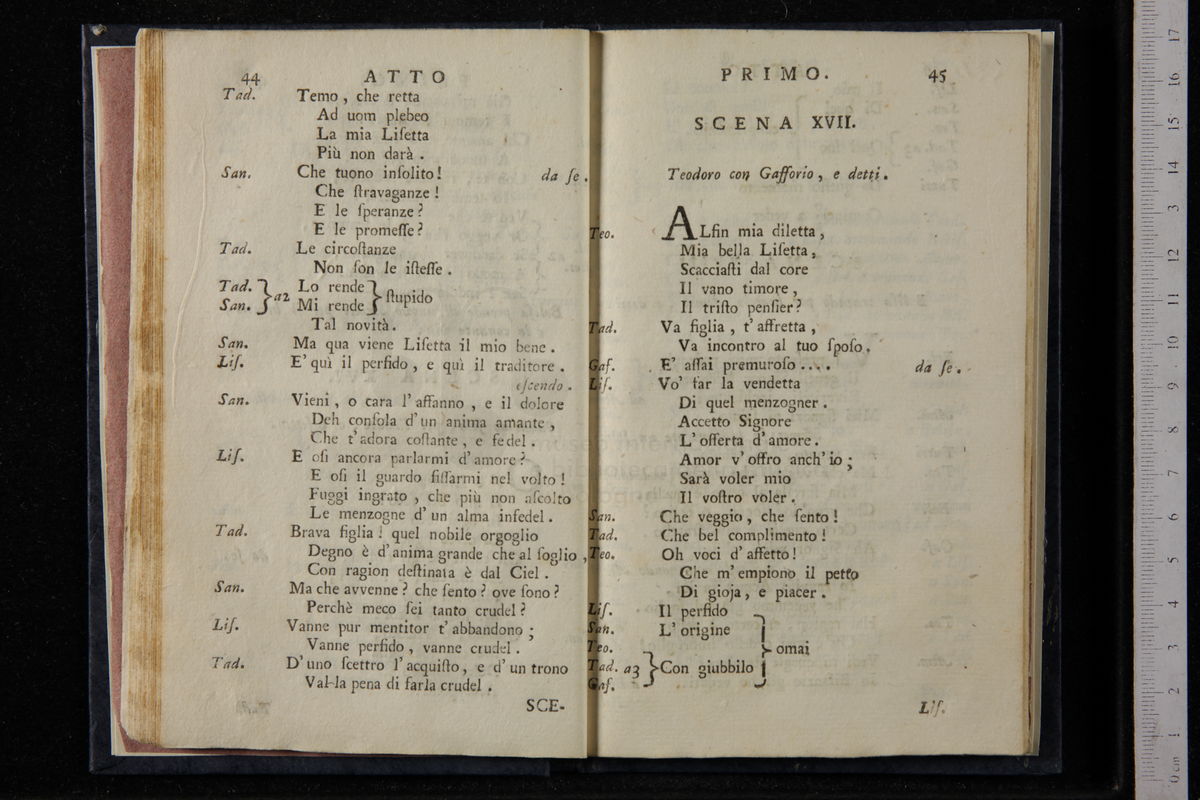 44 ATTO
Tad. Temo, che retta
Ad uom plebeo
La mia Liſetta
Più non darà.
San. Che tuono inſolito! da ſe.
Che ſtravaganze!
E le ſperanze?
E le promeſſe?
Tad. Le circoſtanze
Non ſon le iſteſſe.
Tad. } a2 Lo rende } ſtupido
San. } Mi rende }
Tal novità.
San. Ma qua viene Liſetta il mio bene.
Liſ. E' quì il perfido, e quì il traditore.
eſcendo.
San. Vieni, o cara l'affanno, e il dolore
Deh conſola d'un anima amante,
Che t'adora coſtante, e fedel.
Liſ. E oſi ancora parlarmi d'amore?
E oſi il guardo fiſſarmi nel volto!
Fuggi ingrato, che più non aſcolto
Le menzogne d'un alma infedel.
Tad. Brava figlia! quel nobile orgoglio
Degno è d'anima grande che al ſoglio,
Con ragion deſtinata è dal Ciel.
San. Ma che avvenne? che ſento? ove ſono?
Perchè meco ſei tanto crudel?
Liſ. Vanne pur mentitor t'abbandono;
Vanne perfido, vanne crudel.
Tad. D'uno ſcettro l'acquiſto, e d'un trono
Val-la pena di farla crudel.
SCE-
PRIMO. 45
SCENA XVII.
Teodoro con Gafforio, e detti.
Teo. ALfin mia diletta,
Mia bella Liſetta,
Scacciaſti dal core
Il vano timore,
Il triſto penſier?
Tad. Va figlia, t'affretta,
Va incontro al tuo ſpoſo.
Gaf. E' aſſai premuroſo.... da ſe.
Liſ. Vo' far la vendetta
Di quel menzogner.
Accetto Signore
L'offerta d'amore.
Amor v'offro anch'io;
Sarà voler mio
Il voſtro voler.
San. Che veggio, che ſento!
Tad. Che bel complimento!
Teo. Oh voci d'affetto!
Che m'empiono il petto
Di gioja, e piacer.
Liſ. Il perfido
San. L'origine
Teo. } omai
Tad. a3 } Con giubbilo
Gaf.
Liſ.